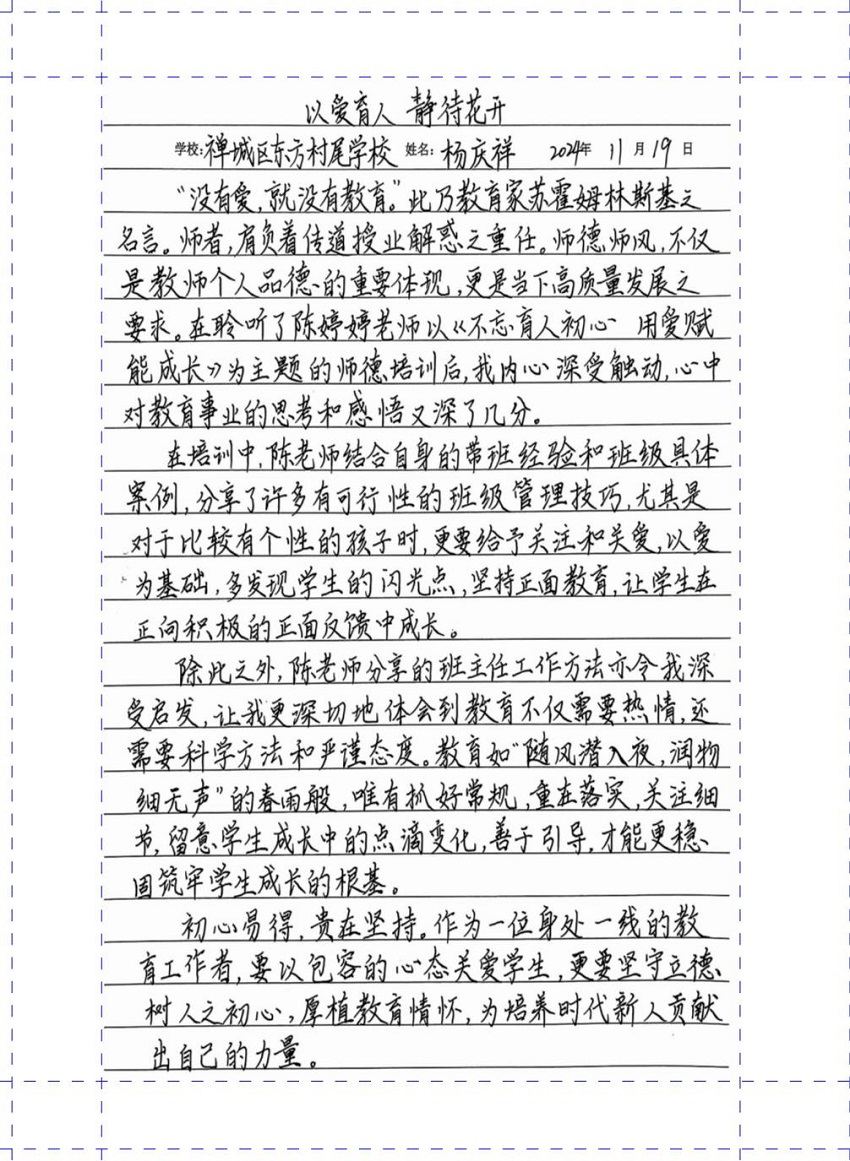 以爱育人 静待花开
学校:禅城区东方村尾学校 姓名:杨庆祥 2024年 11月19日
“没有爱,就没有教育。”此乃教育家苏霍姆林斯基之
名言。师者,肩负着传道授业解惑之重任。师德师风,不仅
是教师个人品德的重要体现,更是当下高质量发展之
要求。在聆听了陈婷婷老师以《不忘育人初心 用爱赋
能成长》为主题的师德培训后,我内心深受触动,心中
对教育事业的思考和感悟又深了几分。
在培训中,陈老师结合自身的带班经验和班级具体
案例,分享了许多有可行性的班级管理技巧,尤其是
对于比较有个性的孩子时,更要给予关注和关爱,以爱
为基础,多发现学生的闪光点,坚持正面教育,让学生在
正向积极的正面反馈中成长。
除此之外,陈老师分享的班主任工作方法亦令我深
受启发,让我更深切地体会到教育不仅需要热情,还
需要科学方法和严谨态度。教育如“随风潜入夜,润物
细无声”的春雨般,唯有抓好常规,重在落实,关注细
节,留意学生成长中的点滴变化,善于引导,才能更稳
固筑牢学生成长的根基。
初心易得,贵在坚持。作为一位身处一线的教
育工作者,要以包容的心态关爱学生,更要坚守立德
树人之初心,厚植教育情怀,为培养时代新人贡献
出自己的力量。